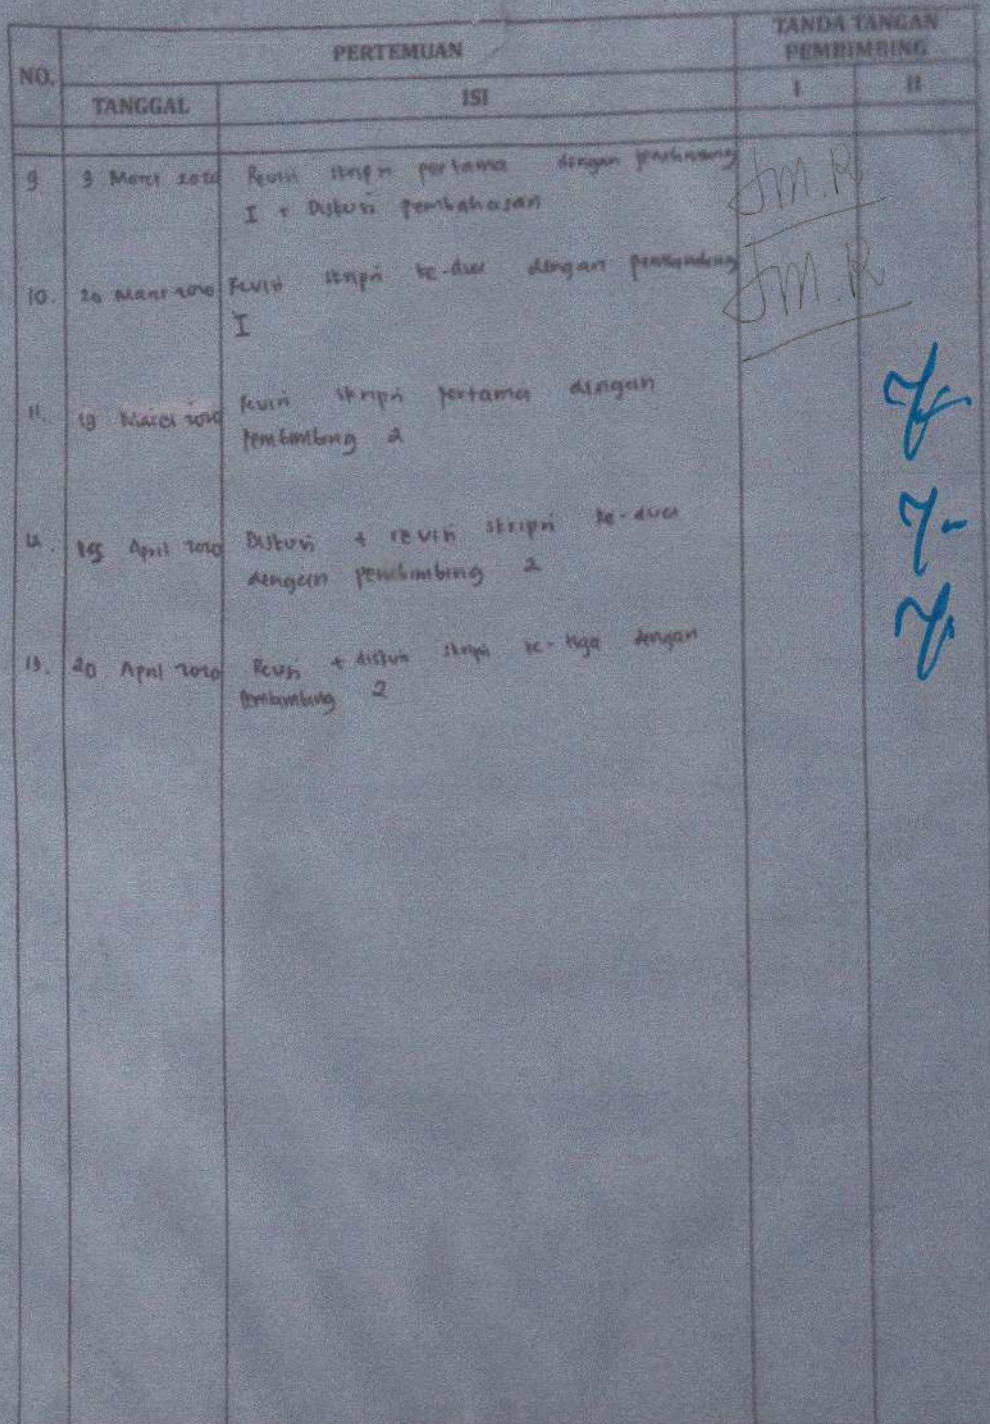 NO.
PERTEMUAN
TANDA TANGAN
PEMBIMBING
TANGGAL
ISI
I
II
9 3 Maret 2020 Revisi skripsi pertama dengan pembimbing
I + Diskusi pembahasan
10. 20 Maret 2020 Revisi skripsi ke-dua dengan pembimbing
I
11. 19 Maret 2020 Revisi skripsi pertama dengan
pembimbing 2
12. 15 April 2020 Diskusi + revisi skripsi ke-dua
dengan pembimbing 2
13. 20 April 2020 Revisi + diskusi skripsi ke-tiga dengan
pembimbing 2